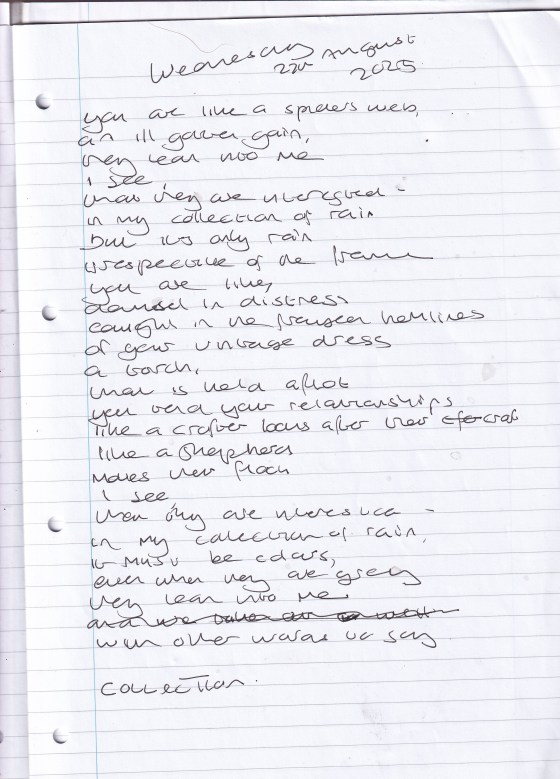 Wednesday
27th August
2025
you are like a spiders web,
an ill gotten gain,
they lean into me
I see,
that they are interested -
in my collection of rain
but its only rain
irrespective of the frame
you are like,
damsel in distress
caught in the frayed hemlines
of your vintage dress
a torch,
that is held aflot
you tend your relationships
like a crafter looks after their craft
like a shepherd
moves their flock
I see,
that they are interested -
in my collection of rain,
it must be colours,
even when they are grey
they lean into me
and we
with other words we say
collection.